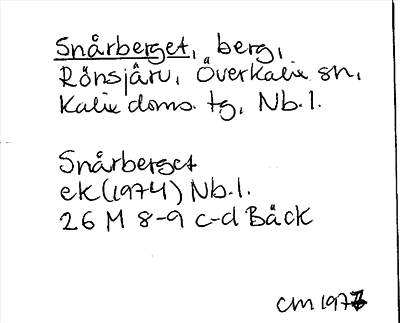 Snårberget, berg,
Rönsjärv, Överkalix sn,
Kalix doms. tg, Nb. l.
Snårberget
ek (1974) Nb. l.
26 M 8-9 c-d Bäck
CM 1977